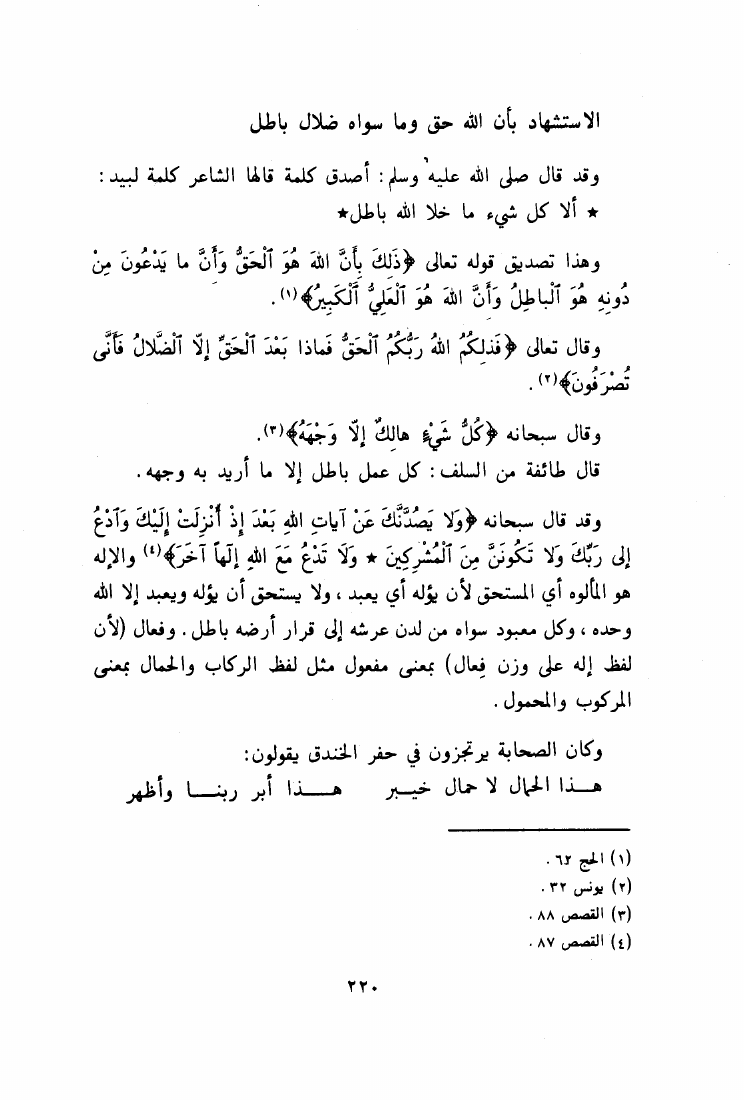 الاستشهاد بأن الله حق وما سواه ضلال باطل
وقد قال صلى الله عليه وسلم: أصدق كلمة قالها الشاعر كلمة لبيد:
★ ألا كل شيء ما خلا الله باطل★
وهذا تصديق قوله تعالى ﴿ذَلِكَ بِأَنَّ اللهَ هُوَ ٱلْحَقُّ وَأَنَّ ما يَدْعُونَ مِنْ
دُونِهِ هُوَ ٱلْباطِلُ وَأَنَّ اللهَ هُوَ ٱلْعَلِيُّ ٱلْكَبِيرُ﴾(١).
وقال تعالى ﴿فَذلِكُمُ اللهُ رَبُّكُمُ ٱلْحَقُّ فَماذا بَعْدَ ٱلْحَقِّ إِلّا ٱلضَّلالُ فَأَنَّى
تُصْرَفُونَ﴾(٢).
وقال سبحانه ﴿كُلُّ شَيْءٍ هالِكٌ إِلّا وَجْهَهُ﴾(٣).
قال طائفة من السلف: كل عمل باطل إلا ما أريد به وجهه.
وقد قال سبحانه ﴿وَلا يَصُدَّنَّكَ عَنْ آياتِ اللهِ بَعْدَ إِذْ أُنْزِلَتْ إِلَيْكَ وَٱدْعُ
إِلى رَبِّكَ وَلا تَكُونَنَّ مِنَ ٱلْمُشْرِكِينَ ★ وَلا تَدْعُ مَعَ اللهِ إِلهاً آخَرَ﴾(٤) والإله
هو المألوه أي المستحق لأن يؤله أي يعبد، ولا يستحق أن يؤله ويعبد إلا الله
وحده، وكل معبود سواه من لدن عرشه إلى قرار أرضه باطل. وفعال (لأن
لفظ إله على وزن فِعال) بمعنى مفعول مثل لفظ الركاب والحمال بمعنى
المركوب والمحمول.
وكان الصحابة يرتجزون في حفر الخندق يقولون:
هـذا الحمال لا حمال خيـبر هـــذا أبر ربنــا وأظهر
(١) الحج ٦٢.
(٢) يونس ٣٢.
(٣) القصص ٨٨.
(٤) القصص ٨٧.
٢٢٠